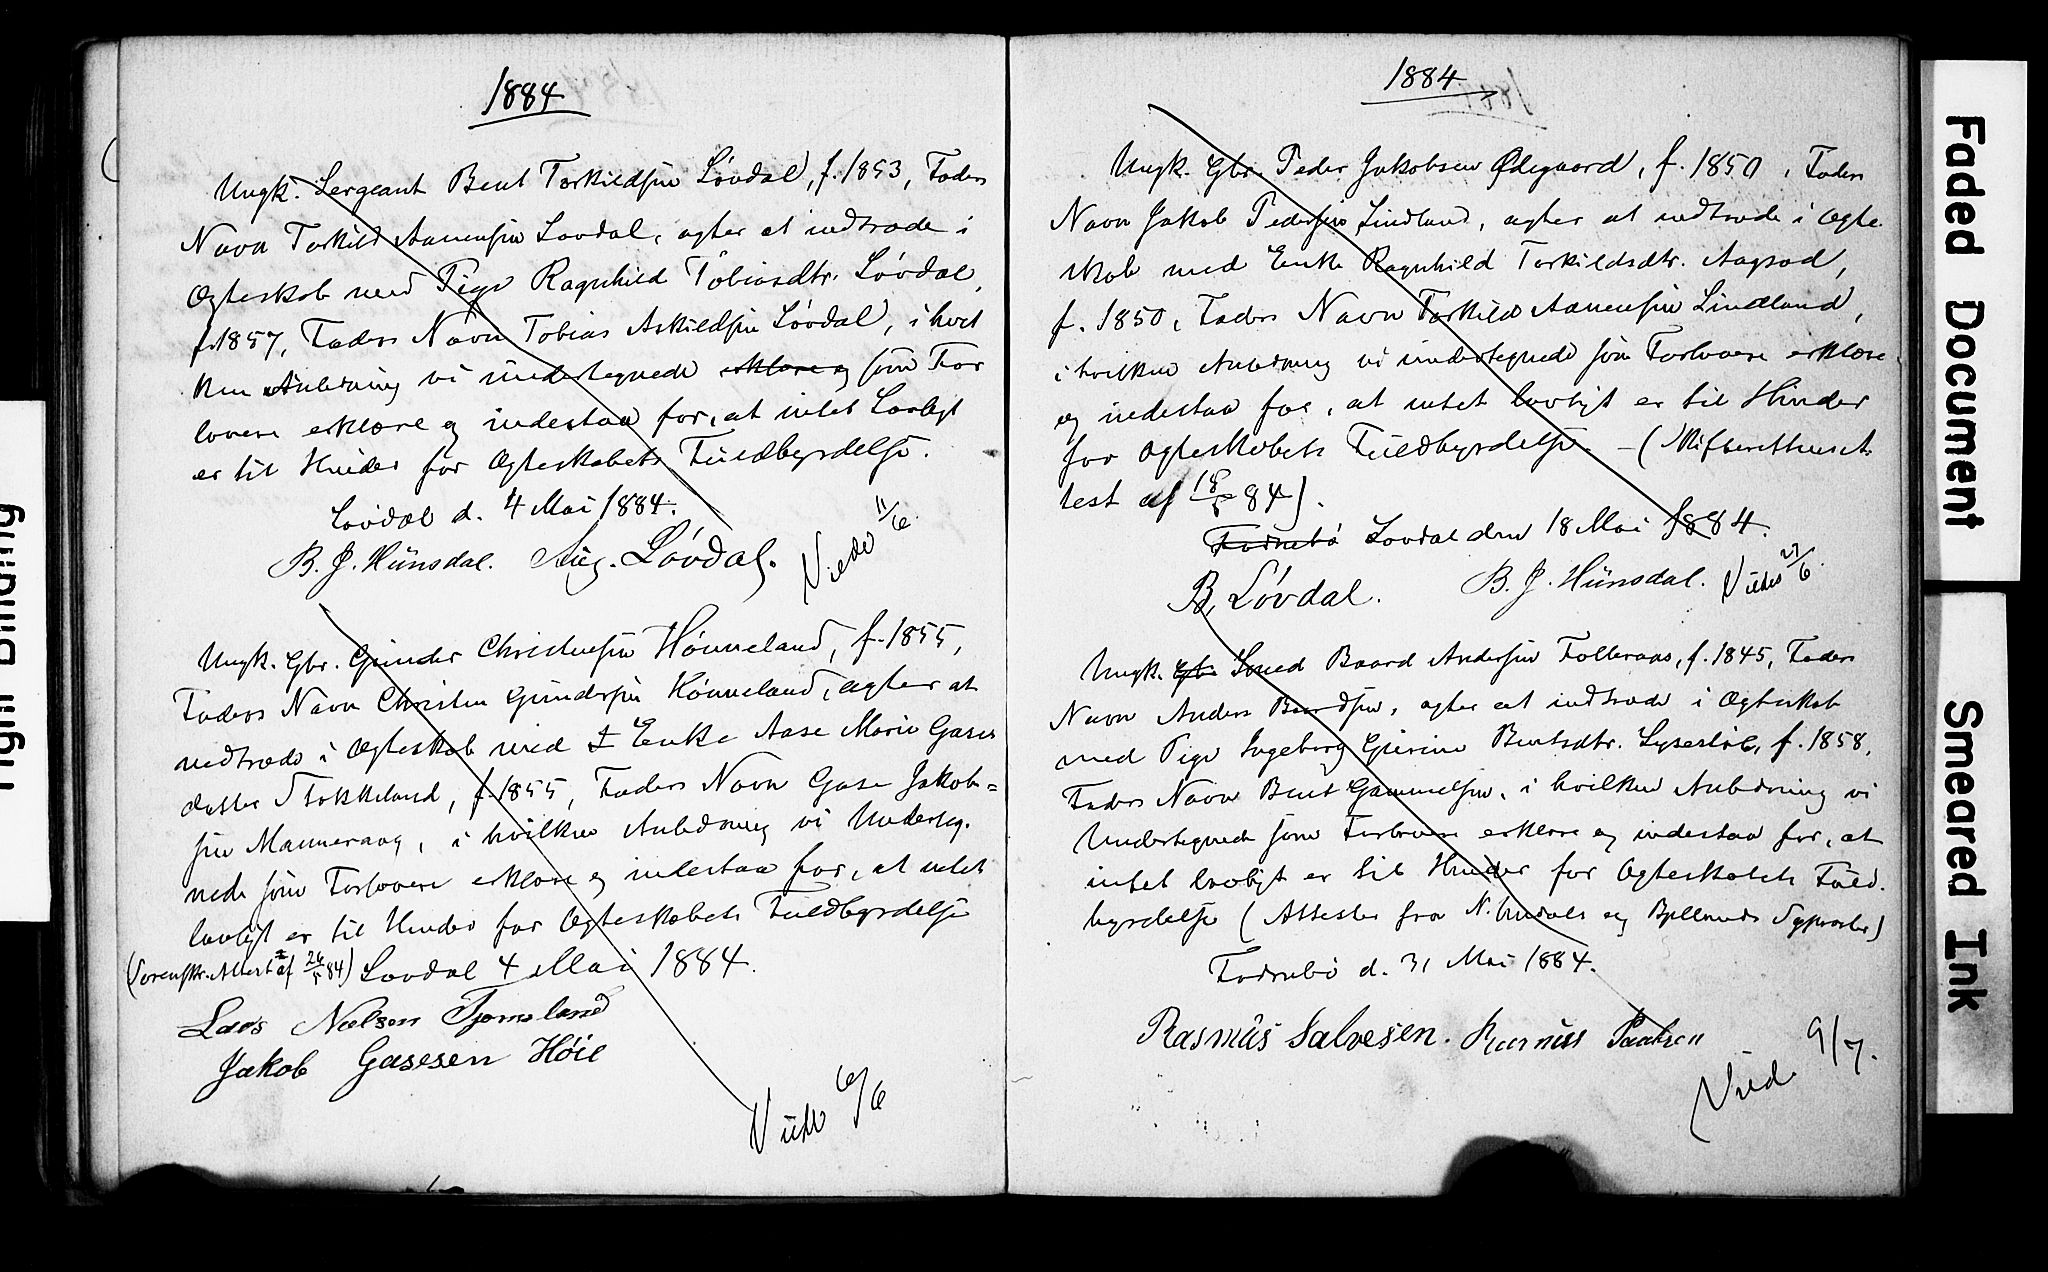 1884
Ungk. Sergeant Bent Torkildsen Løvdal, f. 1853, Faders
Navn Torkild Aanensen Lovdal, agter at indtræde i
Ægteskab med Pige Ragnhild Tobiasdtr. Løvdal,
f. 1857, Faders Navn Tobias Askildsen Løvdal, i hvil
ken Anledning vi undertegnede erklære og som For
lovere erklære og indestaa for, at intet Lovligt
er til Hinder for Ægteskabets Fuldbyrdelse.
Lovdal d. 4 Mai 1884.
B. J. Hünsdal. Aug. Løvdal.
Viede 11/6
Ungk. Gbr. Gunder Christensen Hønneland, f. 1855,
Faders Navn Christen Gundersen Hønneland, agter at
indtræde i Ægteskab med Enke Aase Marie Gases
datter Stokkeland, f. 1855, Faders Navn Gase Jakob=
sen Manneraag, i hvilken Anledning vi Underteg.
nede som Forlovere erklære og indestaa for, at intet
lovligt er til Hinder for Ægteskabets Fuldbyrdelse
(Sorenskr. Attest af 26/5 84) Lovdal 4 Mai 1884.
Lars Nielsen Tjomsland
Jakob Gasesen Høie
Viede 6/6
1884
Ungk. Gbr. Peder Jakobsen Ødegaard, f. 1850, Faders
Navn Jakob Pedersen Lindland, agter at indtræde i Ægte.
skab med Enke Ragnhild Torkildsdtr. Aagsad,
f. 1850, Faders Navn Torkild Aanensen Lindland,
i hvilken Anledning vi undertegnede som Forlovere erklære
og indestaa for, at intet lovligt er til Hinder
for Ægteskabets Fuldbyrdelse. – (Skifterettensat
test af 18/5 84).
Fodnebø Lovdal den 18 Mai 1884.
B. Løvdal. B. J. Hünsdal.
Viedes 27/6.
Ungk. Gbr Smed Baard Andersen Folleraas, f. 1845, Faders
Navn Anders Baardsen, agter at indtræde i Ægteskab
med Pige Ingeborg Gurine Bentsdtr. Lysestøl, f. 1858,
Faders Navn Bent Gammelsen, i hvilken Anledning vi
Undertegnede som Forlovere erklære og indestaa for, at
intet lovligt er til Hinder for Ægteskabets Fuld.
byrdelse (Attester fra N. Undals og Bjellands Sgpræster)
Fodnebø d. 31 Mai 1884.
Rasmüs Salvesen. Rasmus Paulsen
Vied. 9/7.
Faded Document
Smeared Ink
Tight Binding